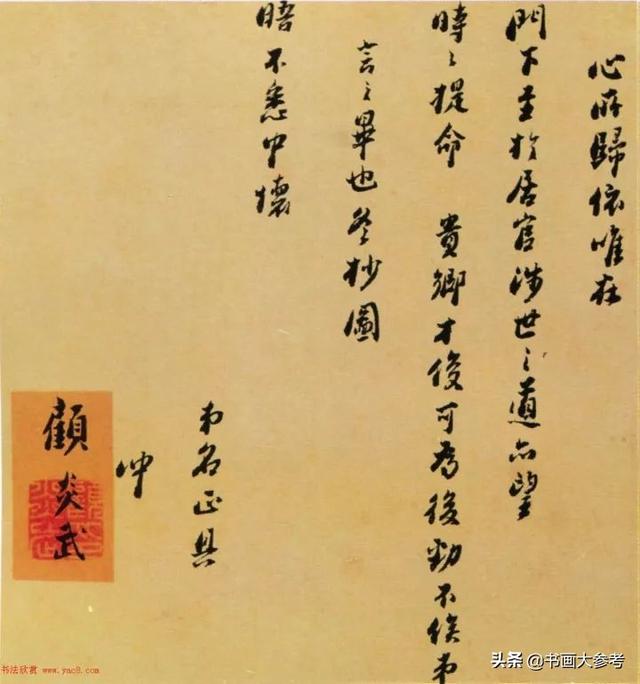 心所歸依唯在
門下至於居官涉世之道亦望
時之提命 貴鄉才俊可為後勁不俟弟
言之畢也冬杪圖
晤不悉中懷
弟名正具
冲
顧炎武
书法欣赏 www.yac8.com
头条 @书画大参考